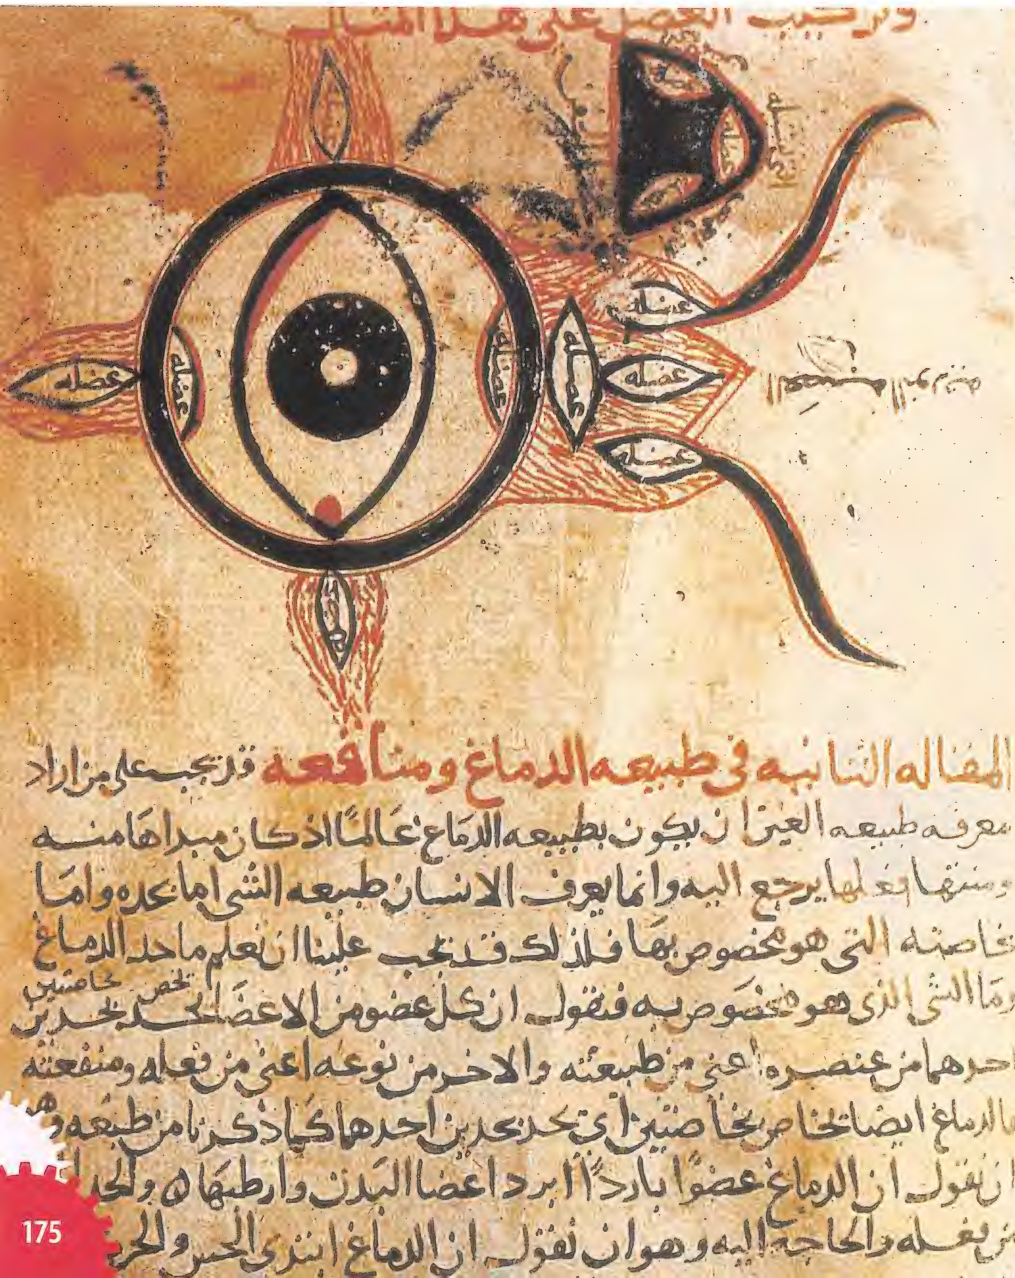 وتركيب العضل على هذا المثال
عضله
عضله
عضله
عضله
عضله
عضله
عضله
عضله
المقاله الثانيه في طبيعه الدماغ ومنافعه قد يجب على من اراد
معرفه طبيعه العين ان يكون بطبيعه الدماغ عالمًا اذ كان مبداها منه
ومنتها فعلها يرجع اليه وانما يعرف الانسان طبيعه الشي اما بحده واما
بخاصته التي هو مخصوص بها فلذلك قد يجب علينا ان نعلم ما حد الدماغ
وما الشي الذي هو مخصوص به فنقول ان كل عضو من الاعضا يحد بحدين
يخص بخاصتين
احدهما من عنصره اعني من طبيعته والاخر من نوعه اعني من فعله ومنفعته
فالدماغ ايضا بخاصتين اي يحد بحدين احدهما كما ذكرنا من طبعه وهو
ان نقول ان الدماغ عضوًا باردًا ابرد اعضا البدن وارطبها والحد
من فعله والحاجه اليه وهو ان نقول ان الدماغ ابتدى الحس والحر
175